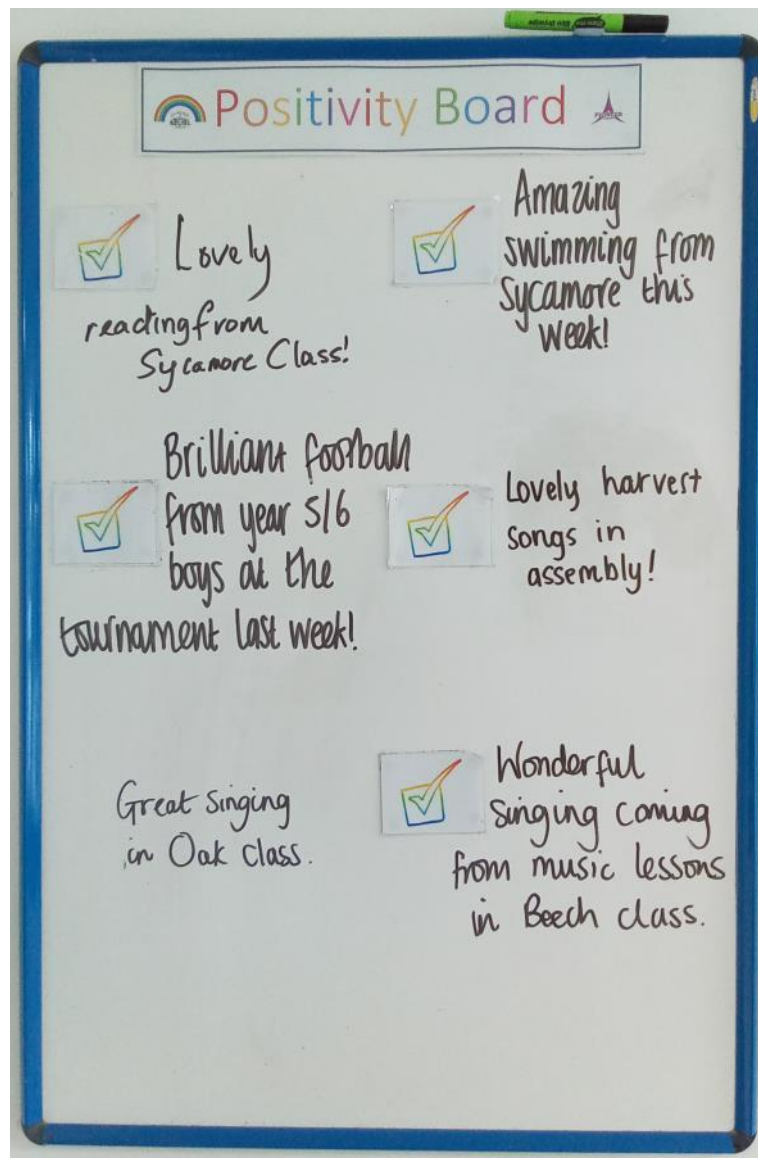 Positivity Board
Lovely
reading from
Sycamore Class!
Amazing
swimming from
Sycamore this
week!
Brilliant football
from year 5/6
boys at the
tournament last week!
Lovely harvest
songs in
assembly!
Great singing
in Oak class.
Wonderful
singing coming
from music lessons
in Beech class.